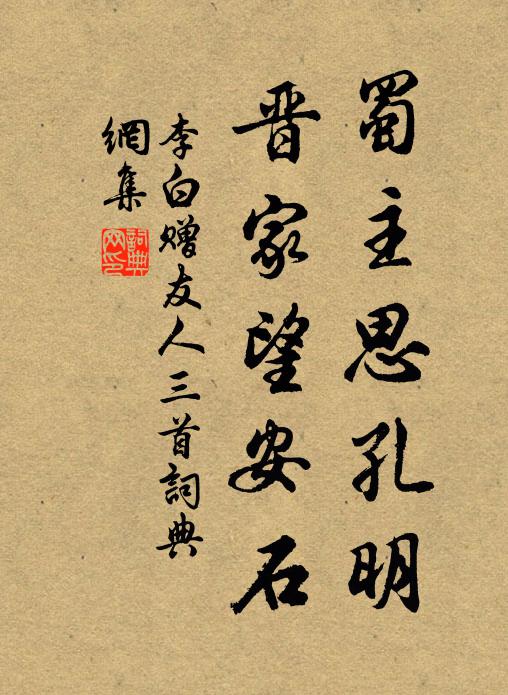 蜀主思孔明
晋家望安石
李白赠友人三首詞典
網集
詞典
网印